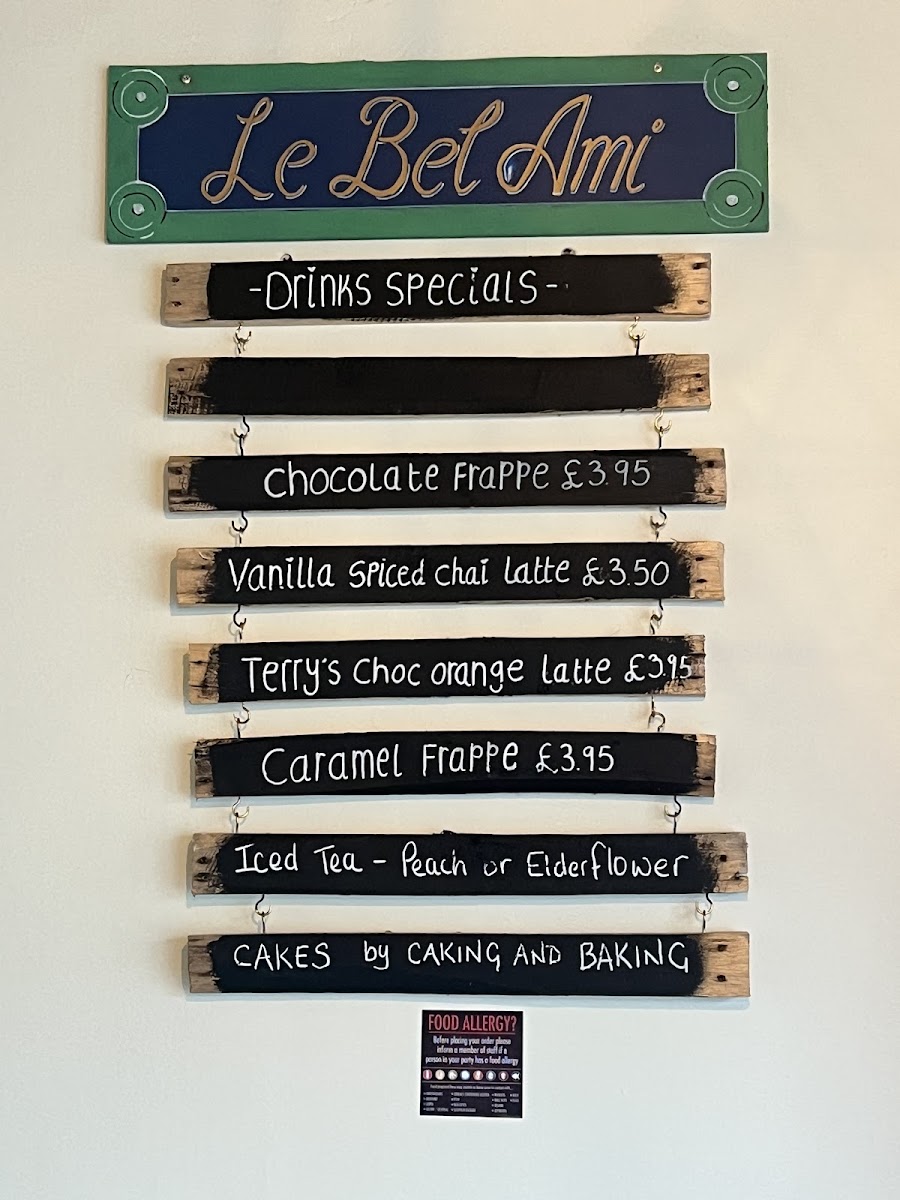 Le Bel Ami
-Drinks Specials-
Chocolate Frappe £3.95
Vanilla Spiced Chai Latte £3.50
Terry's Choc orange latte £3.95
Caramel Frappe £3.95
Iced Tea - Peach or Elderflower
CAKES by CAKING AND BAKING
FOOD ALLERGY?
Before placing your order please
inform a member of staff if a
person in your party has a food allergy